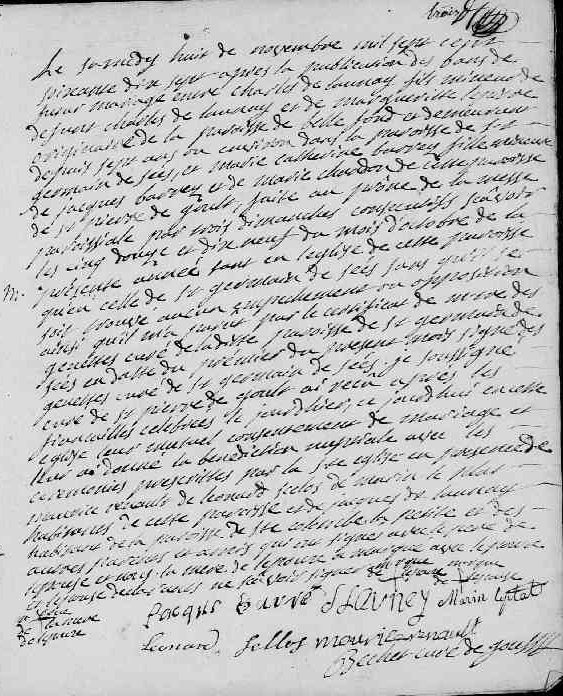 Le samedy huit de novembre mil sept cent
soixante dix sept après la publication des bans de
futur mariage entre charles de launay fils mineur de
defunt charles de launay et de marguerite
originaire de la paroisse de belle fond et demeurant
depuis sept ans ou environ dans la paroisse de st
germain de sées, et marie catherine barrey fille mineure
de jacques barrey et de marie chardon de cette paroisse
de st pierre de goult, faite au prône de la messe
paroissiale par trois dimanches consecutifs sçavoir
les cinq douze et dix neuf du mois d'octobre de la
m. présente année tant en l'eglise de cette paroisse
qu'en celle de st germain de sées sans qu'il se
soit trouvé aucun empeschement ou opposition
ainsi qu'il m'a parut par le certificat de mr des
genettes curé de la ditte paroisse de st germain de
sées en datte du premier du present mois signé des
genettes curé de st germain de sées, je soussigné
curé de st pierre de goult ai reçu après les
fiancailles celebrées le jour d'hier, ce jourd'hui en cette
eglise leur mutuel consentement de mariage et
leur ai donné la benediction nuptiale avec les
ceremonies prescrites par la ste eglise en presence de
maurice renault de leonard selos de marin le
habitans de cette paroisse et de jacques de launay
habitant de la paroisse de ste colombe la petite et des
autres parents et amis qui ont signés avec le pere de
l'epouse et nous, la mere de l'epouse a marqué avec l'epoux
et l'epouse declarants ne sçavoir signer
marque de l'epoux
marque de l'epouse
de la mere
de l'epouse
Jacque Barré J Launey Marin
Leonard Sellos mouricernault
Becher curé de goult